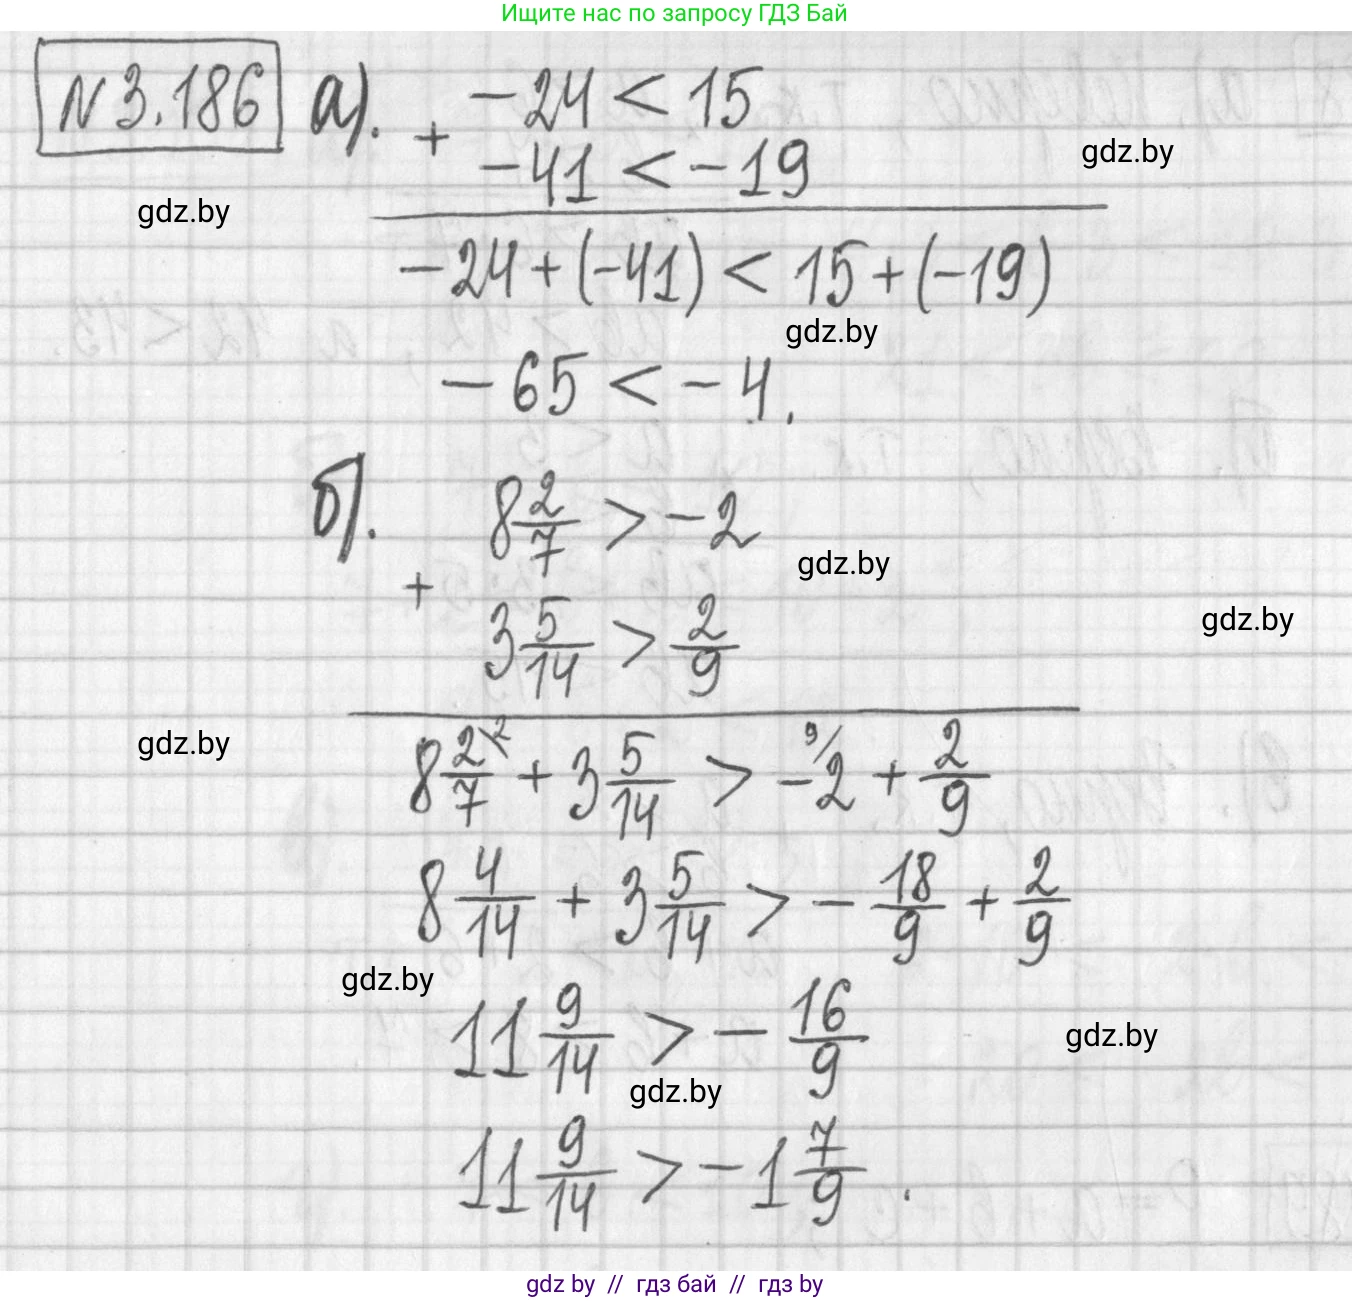 Ищите нас по запросу ГДЗ Бай
N3.186 а). -24 < 15
+
-41 < -19
gdz.by
gdz.by
-24+(-41) < 15+(-19)
gdz.by
-65 < -4.
б). 8 2/7 > -2
gdz.by
+
3 5/14 > 2/9
gdz.by
gdz.by
8 2/7 \2 + 3 5/14 > 9/ -2 + 2/9
8 4/14 + 3 5/14 > - 18/9 + 2/9
gdz.by
11 9/14 > - 16/9
gdz.by
gdz.by
11 9/14 > -1 7/9.
gdz by // гдз бай // гдз by